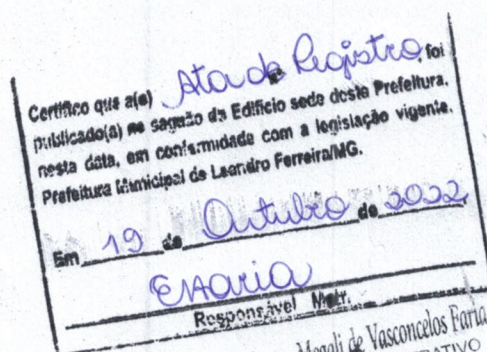 Certifico que a(o) Ata de Registro, foi
publicado(a) no saguão do Edifício sede deste Prefeitura,
nesta data, em conformidade com a legislação vigente.
Prefeitura Municipal de Leandro Ferreira/MG.
Em 19 de Outubro de 2022
Responsável Matr.
Magali de Vasconcelos Faria